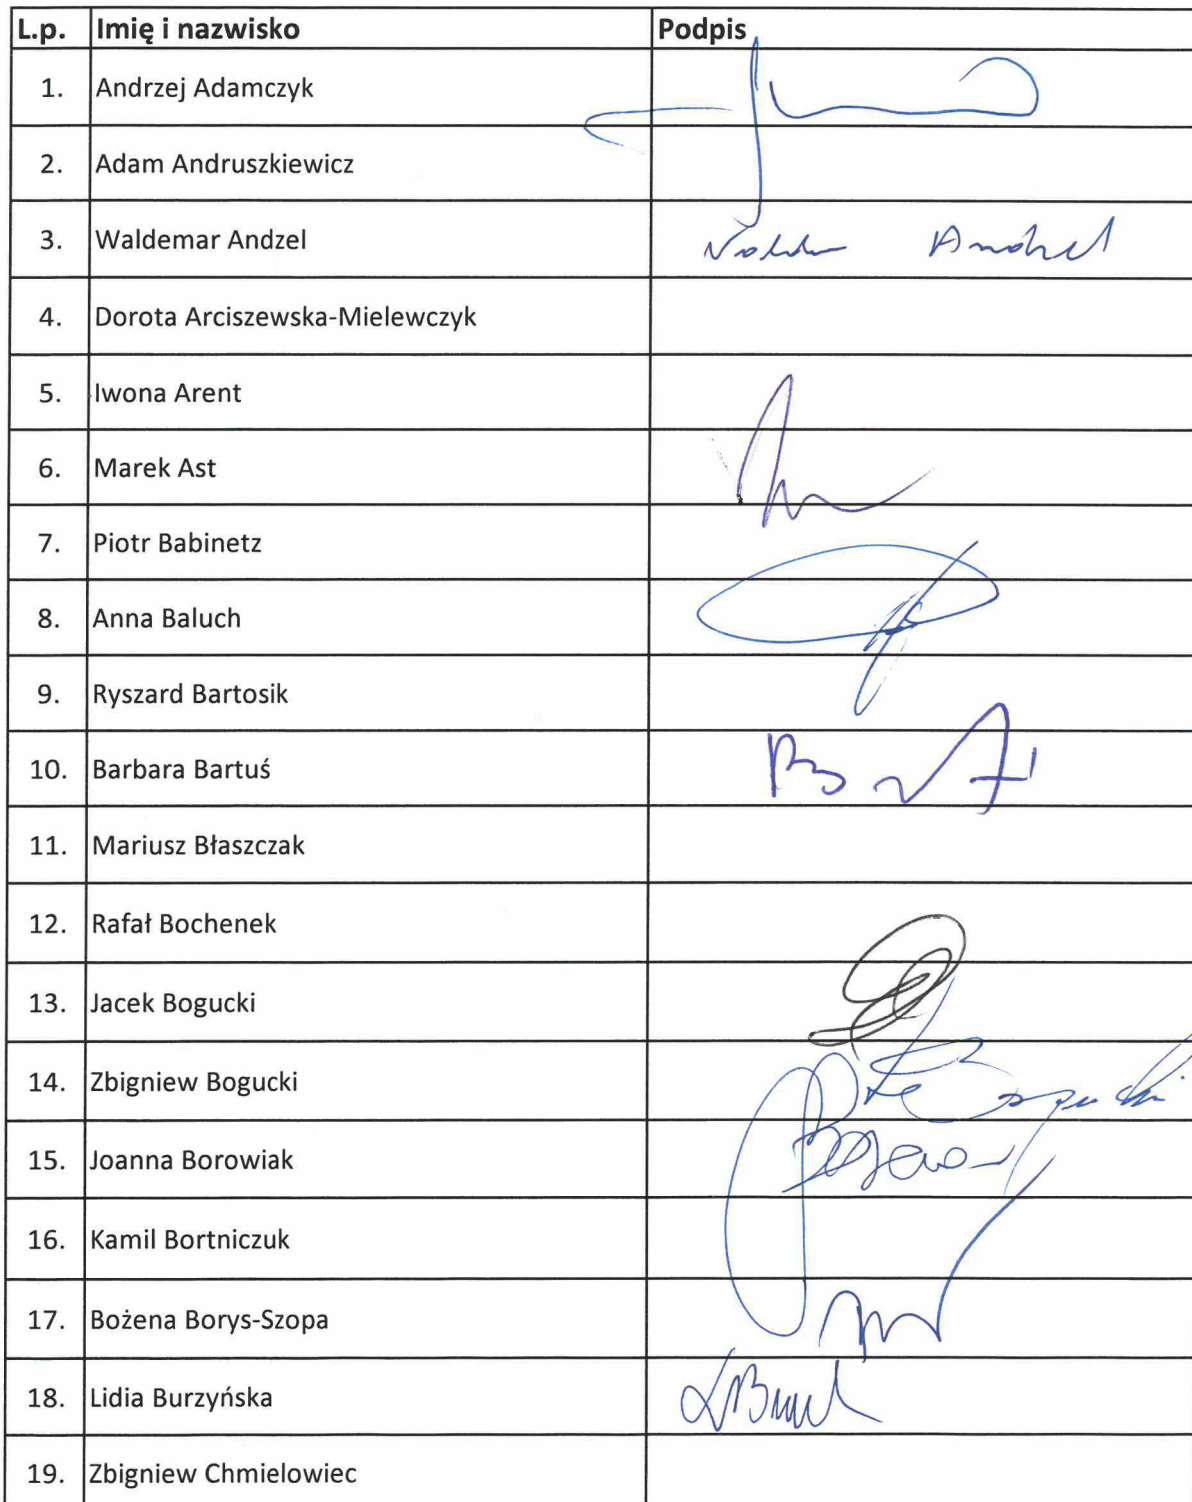 L.p. Imię i nazwisko Podpis
1. Andrzej Adamczyk
2. Adam Andruszkiewicz
3. Waldemar Andzel
4. Dorota Arciszewska-Mielewczyk
5. Iwona Arent
6. Marek Ast
7. Piotr Babinetz
8. Anna Baluch
9. Ryszard Bartosik
10. Barbara Bartuś
11. Mariusz Błaszczak
12. Rafał Bochenek
13. Jacek Bogucki
14. Zbigniew Bogucki
15. Joanna Borowiak
16. Kamil Bortniczuk
17. Bożena Borys-Szopa
18. Lidia Burzyńska
19. Zbigniew Chmielowiec